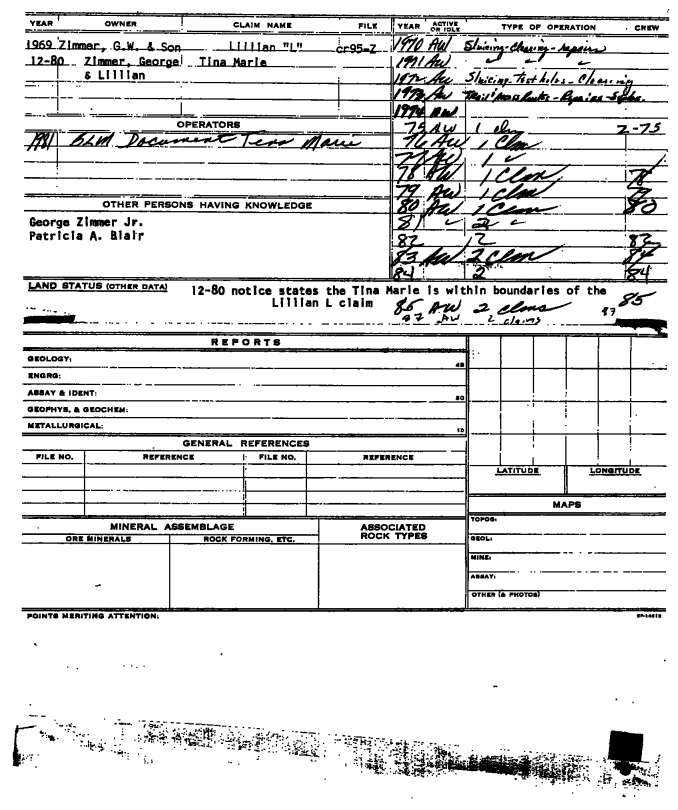 YEAR OWNER CLAIM NAME FILE
1969 Zimmer, G.W. & Son Lillian "L" cr95-Z
12-80 Zimmer, George Tina Marie
& Lillian
OPERATORS
1981 BLM Document Tena Marie
OTHER PERSONS HAVING KNOWLEDGE
George Zimmer Jr.
Patricia A. Blair
YEAR ACTIVE OR IDLE TYPE OF OPERATION CREW
1970 AW Sluicing-Clearing-repairs
1971 AW " " "
1972 AW Sluicing-Test holes-Clearing
1973 AW Trail Repairs
1974 AW
75 AW 1 clm 2-75
76 AW 1 Clm
77 AW 1 "
78 AW 1 Clm 78
79 AW 1 Clm
80 AW 1 Clm 80
81 " 2 "
82 2 82
83 AW 2 Clms 84
84 2 84
LAND STATUS (OTHER DATA) 12-80 notice states the Tina Marie is within boundaries of the
Lillian L claim
85 AW 2 clms 85
87 AW 2 claims 87
REPORTS
GEOLOGY:
ENGRG:
ASSAY & IDENT:
GEOPHYS. & GEOCHEM:
METALLURGICAL:
GENERAL REFERENCES
FILE NO. REFERENCE FILE NO. REFERENCE
LATITUDE LONGITUDE
MINERAL ASSEMBLAGE
ORE MINERALS ROCK FORMING, ETC.
ASSOCIATED
ROCK TYPES
MAPS
TOPOG:
GEOL:
MINE:
ASSAY:
OTHER (& PHOTOS)
POINTS MERITING ATTENTION: